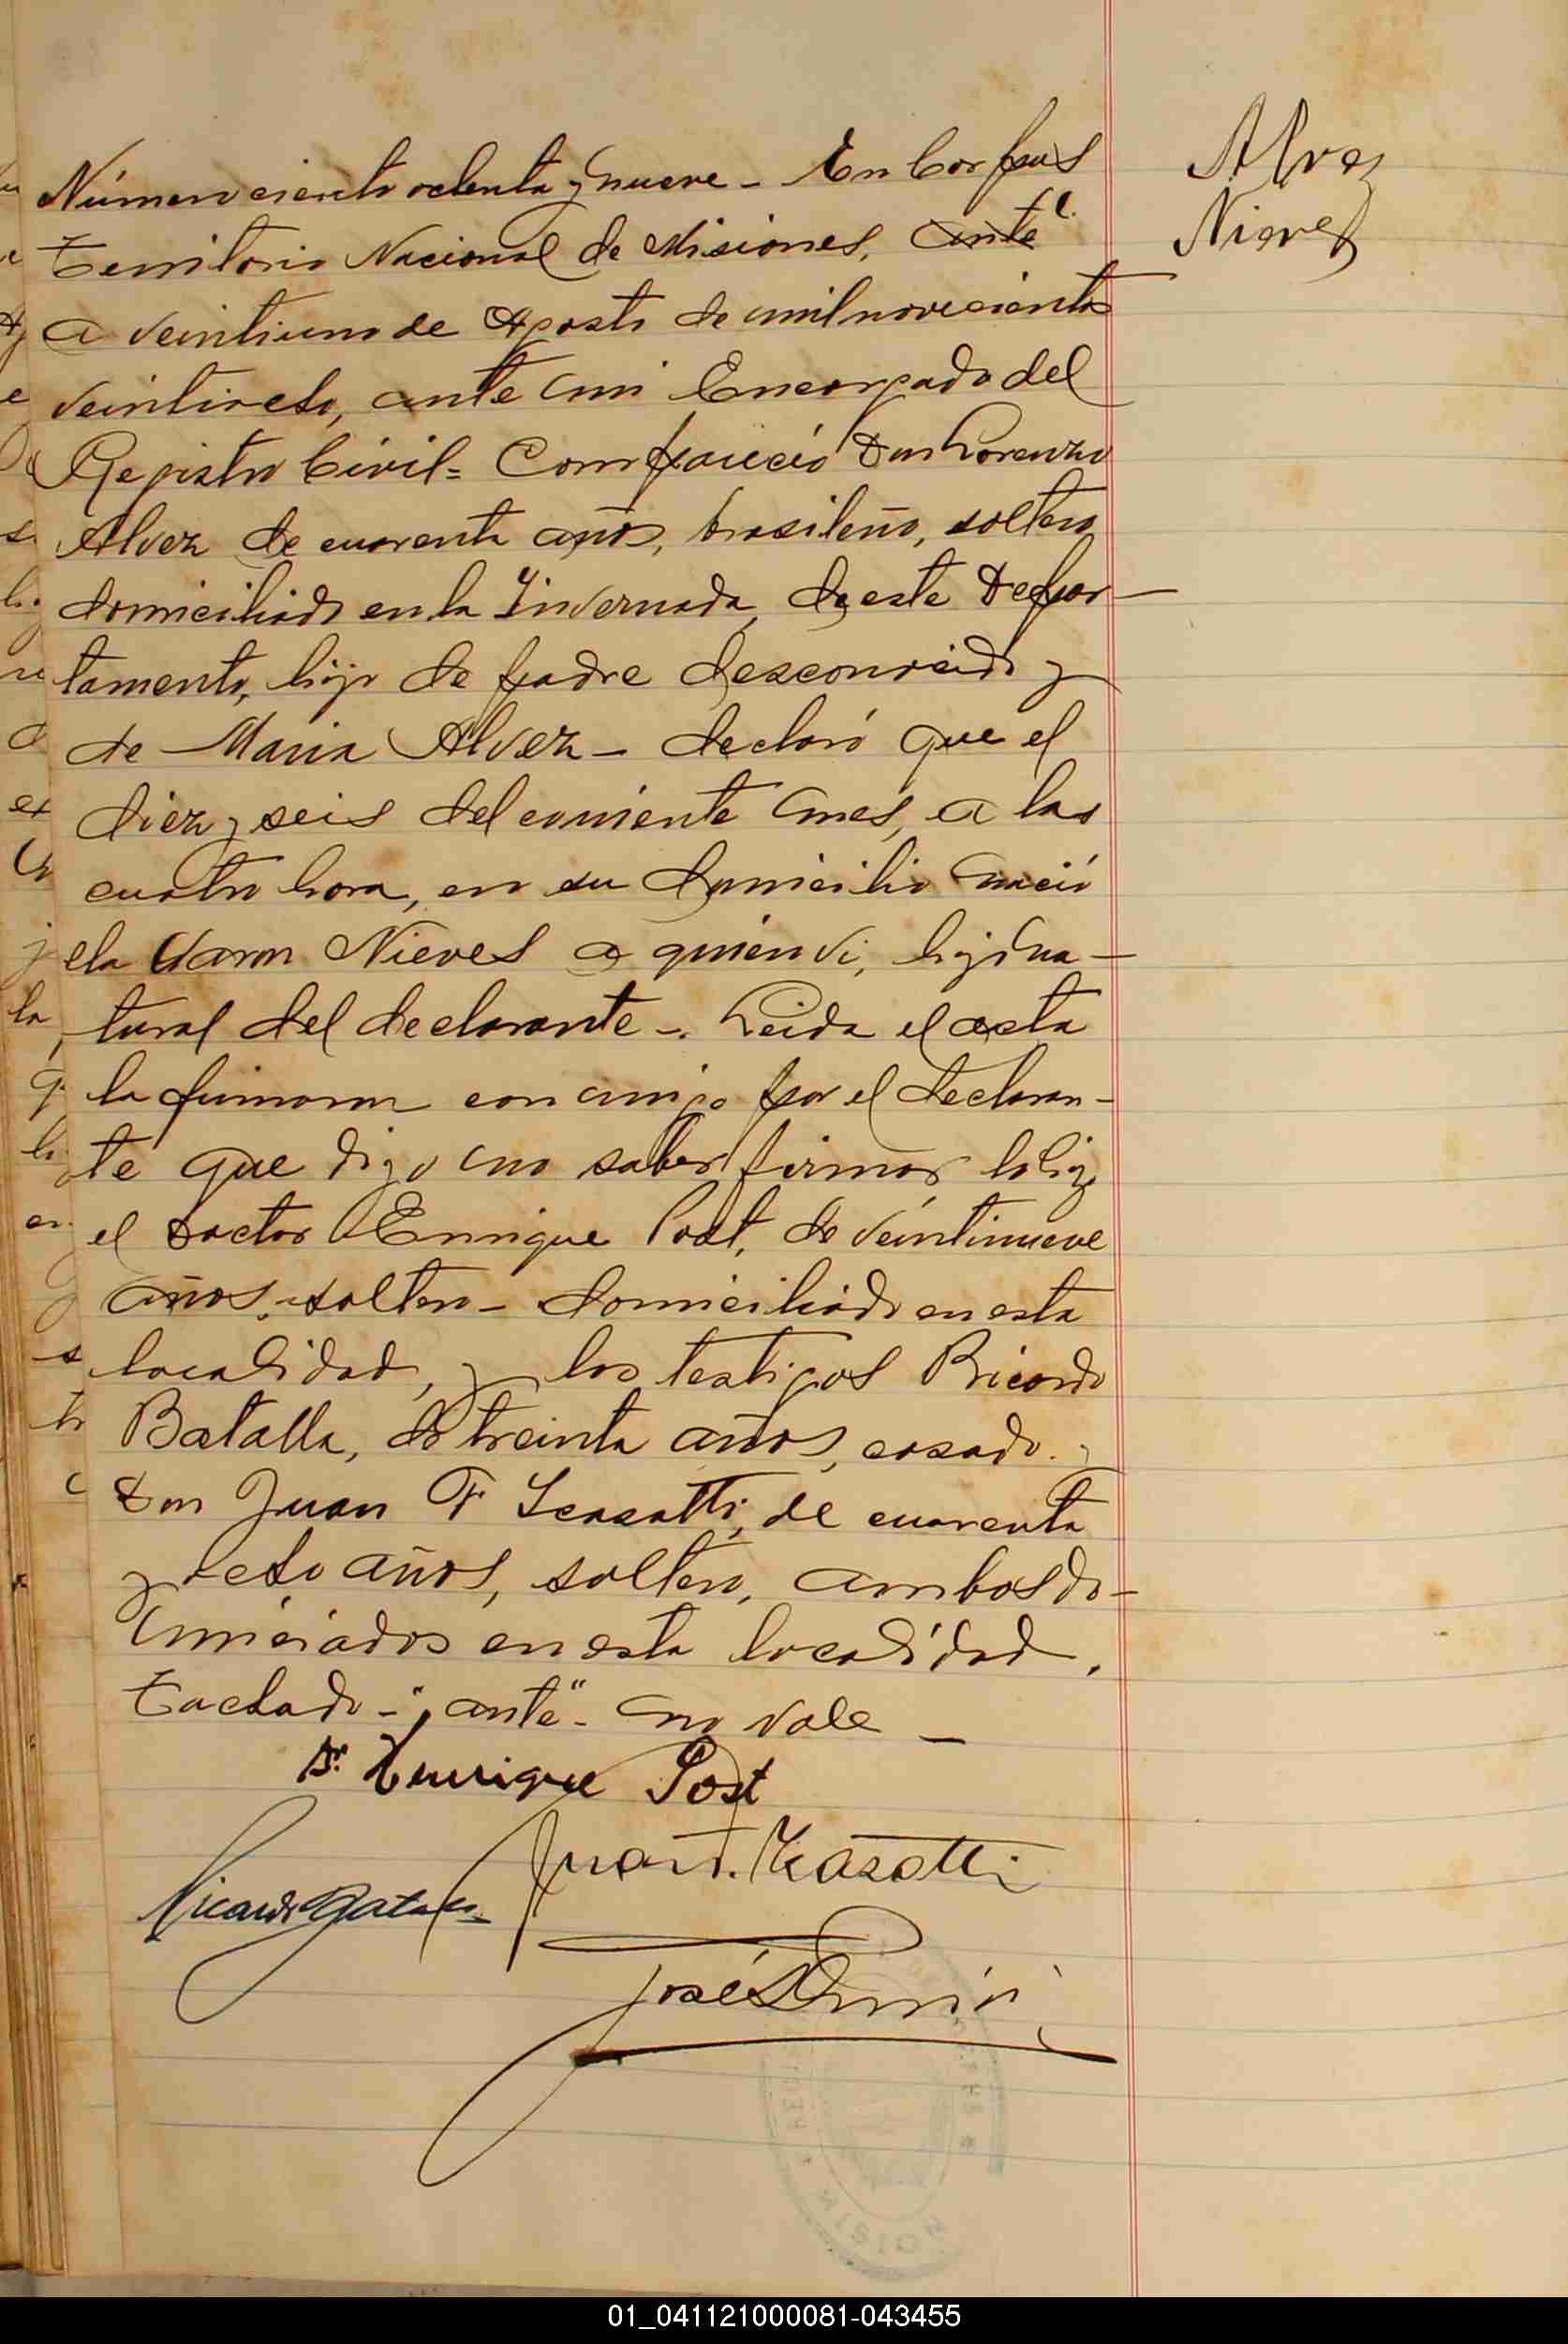 Alvez
Nieves
Número ciento ochenta y nueve - En Corpus
Territorio Nacional de Misiones, ante
a veintiuno de Agosto de mil novecientos
veintiocho, ante mi Encargado del
Registro Civil = Compareció Don Lorenzo
Alvez de cuarenta años, brasileño, soltero,
domiciliado en la Invernada, de este Depar-
tamento, hijo de padre desconocido y
de Maria Alvez - declaró que el
diez y seis del corriente mes, a las
cuatro hora, en su domicilio nació
ela varon Nieves a quien vi, hijo na-
tural del declarante -. Leida el acta
la firmaron conmigo por el declaran-
te que dijo no saber firmar, lo hizo
el Doctor Enrique Post, de veintinueve
años, soltero - domiciliado en esta
localidad, y los testigos Ricardo
Batalla, de treinta años, casado. y
Don Juan F Scasatti, de cuarenta
y ocho años, soltero, ambos do-
miciados en esta localidad.
Tachado - "ante" - no vale -
Dr. Enrique Post
Juan F. Scasatti
Ricardo Batalla
José
01_041121000081-043455